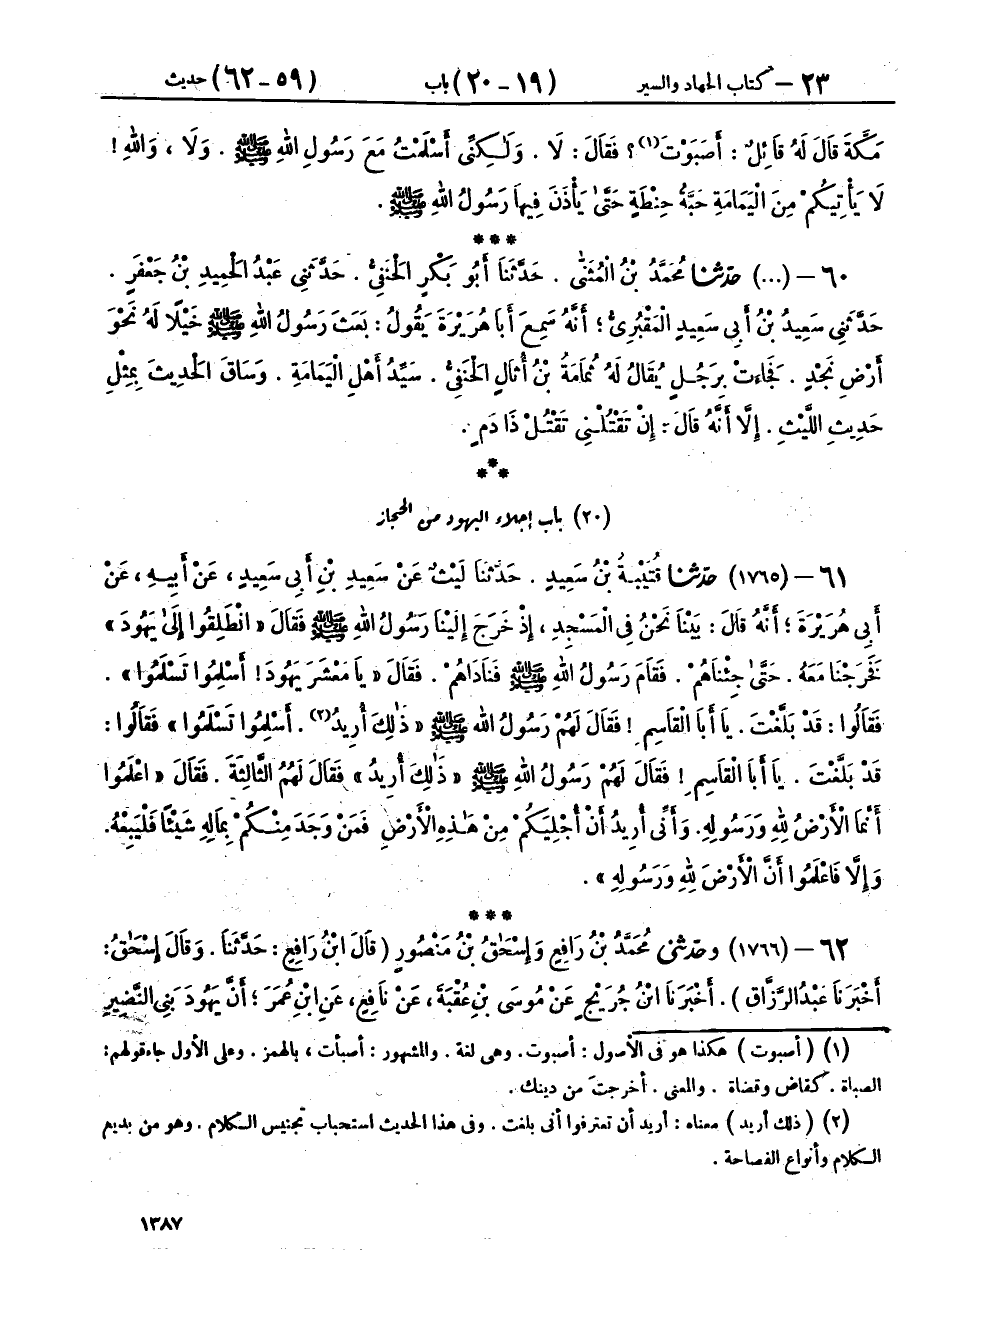 ٢٣ – كتاب الجهاد والسير (١٩ – ٢٠) باب (٥٩ – ٦٢) حديث
مَكَّةَ قَالَ لَهُ قَائِلٌ : أَصَبَوْتَ(١) ؟ فَقَالَ : لَا . وَلَـٰكِنِّى أَسْلَمْتُ مَعَ رَسُولِ اللهِ ﷺ . وَلَا ، وَاللهِ !
لَا يَأْتِيكُمْ مِنَ الْيَمَامَةِ حَبَّةُ حِنْطَةٍ حَتَّىٰ يَأْذَنَ فِيهَا رَسُولُ اللهِ ﷺ .
***
٦٠ – (...) حَدَّثَنَا مُحَمَّدُ بْنُ الْمُثَنَّىٰ . حَدَّثَنَا أَبُو بَكْرٍ الْحَنَفِىُّ . حَدَّثَنِى عَبْدُ الْحَمِيدِ بْنُ جَعْفَرٍ .
حَدَّثَنِى سَعِيدُ بْنُ أَبِى سَعِيدٍ الْمَقْبُرِىُّ ؛ أَنَّهُ سَمِعَ أَبَا هُرَيْرَةَ يَقُولُ : بَعَثَ رَسُولُ اللهِ ﷺ خَيْلًا لَهُ نَحْوَ
أَرْضِ نَجْدٍ . فَجَاءَتْ بِرَجُلٍ يُقَالُ لَهُ ثُمَامَةُ بْنُ أُثَالٍ الْحَنَفِىُّ . سَيِّدُ أَهْلِ الْيَمَامَةِ . وَسَاقَ الْحَدِيثَ بِمِثْلِ
حَدِيثِ اللَّيْثِ . إِلَّا أَنَّهُ قَالَ : إِنْ تَقْتُلْنِى تَقْتُلْ ذَا دَمٍ .
***
(٢٠) باب إجلاء اليهود من الحجاز
٦١ – (١٧٦٥) حَدَّثَنَا قُتَيْبَةُ بْنُ سَعِيدٍ . حَدَّثَنَا لَيْثٌ عَنْ سَعِيدِ بْنِ أَبِى سَعِيدٍ ، عَنْ أَبِيهِ ، عَنْ
أَبِى هُرَيْرَةَ ؛ أَنَّهُ قَالَ : بَيْنَا نَحْنُ فِى الْمَسْجِدِ ، إِذْ خَرَجَ إِلَيْنَا رَسُولُ اللهِ ﷺ فَقَالَ « انْطَلِقُوا إِلَىٰ يَهُودَ »
فَخَرَجْنَا مَعَهُ . حَتَّىٰ جِئْنَاهُمْ . فَقَامَ رَسُولُ اللهِ ﷺ فَنَادَاهُمْ . فَقَالَ « يَا مَعْشَرَ يَهُودَ ! أَسْلِمُوا تَسْلَمُوا » .
فَقَالُوا : قَدْ بَلَّغْتَ . يَا أَبَا الْقَاسِمِ ! فَقَالَ لَهُمْ رَسُولُ اللهِ ﷺ « ذَٰلِكَ أُرِيدُ(٢) . أَسْلِمُوا تَسْلَمُوا » فَقَالُوا :
قَدْ بَلَّغْتَ . يَا أَبَا الْقَاسِمِ ! فَقَالَ لَهُمْ رَسُولُ اللهِ ﷺ « ذَٰلِكَ أُرِيدُ » فَقَالَ لَهُمُ الثَّالِثَةَ . فَقَالَ « اعْلَمُوا
أَنَّمَا الْأَرْضُ لِلهِ وَرَسُولِهِ . وَأَنِّى أُرِيدُ أَنْ أُجْلِيَكُمْ مِنْ هَـٰذِهِ الْأَرْضِ فَمَنْ وَجَدَ مِنْكُمْ بِمَالِهِ شَيْئًا فَلْيَبِعْهُ .
وَإِلَّا فَاعْلَمُوا أَنَّ الْأَرْضَ لِلهِ وَرَسُولِهِ » .
***
٦٢ – (١٧٦٦) وَحَدَّثَنِى مُحَمَّدُ بْنُ رَافِعٍ وَإِسْحَـٰقُ بْنُ مَنْصُورٍ ( قَالَ ابْنُ رَافِعٍ : حَدَّثَنَا . وَقَالَ إِسْحَـٰقُ :
أَخْبَرَنَا عَبْدُ الرَّزَّاقِ ) . أَخْبَرَنَا ابْنُ جُرَيْجٍ عَنْ مُوسَى بْنِ عُقْبَةَ ، عَنْ نَافِعٍ ، عَنِ ابْنِ عُمَرَ ؛ أَنَّ يَهُودَ بَنِى النَّضِيرِ
(١) ( أصبوت ) هكذا هو فى الأصول : أصبوت . وهى لغة . والمشهور : أصبأت ، بالهمز . وعلى الأول جاء قولهم :
الصباة . كقاض وقضاة . والمعنى . أخرجتَ من دينك .
(٢) ( ذلك أريد ) معناه : أريد أن تعترفوا أنى بلغت . وفى هذا الحديث استحباب تجنيس الكلام . وهو من بديع
الكلام وأنواع الفصاحة .
١٣٨٧